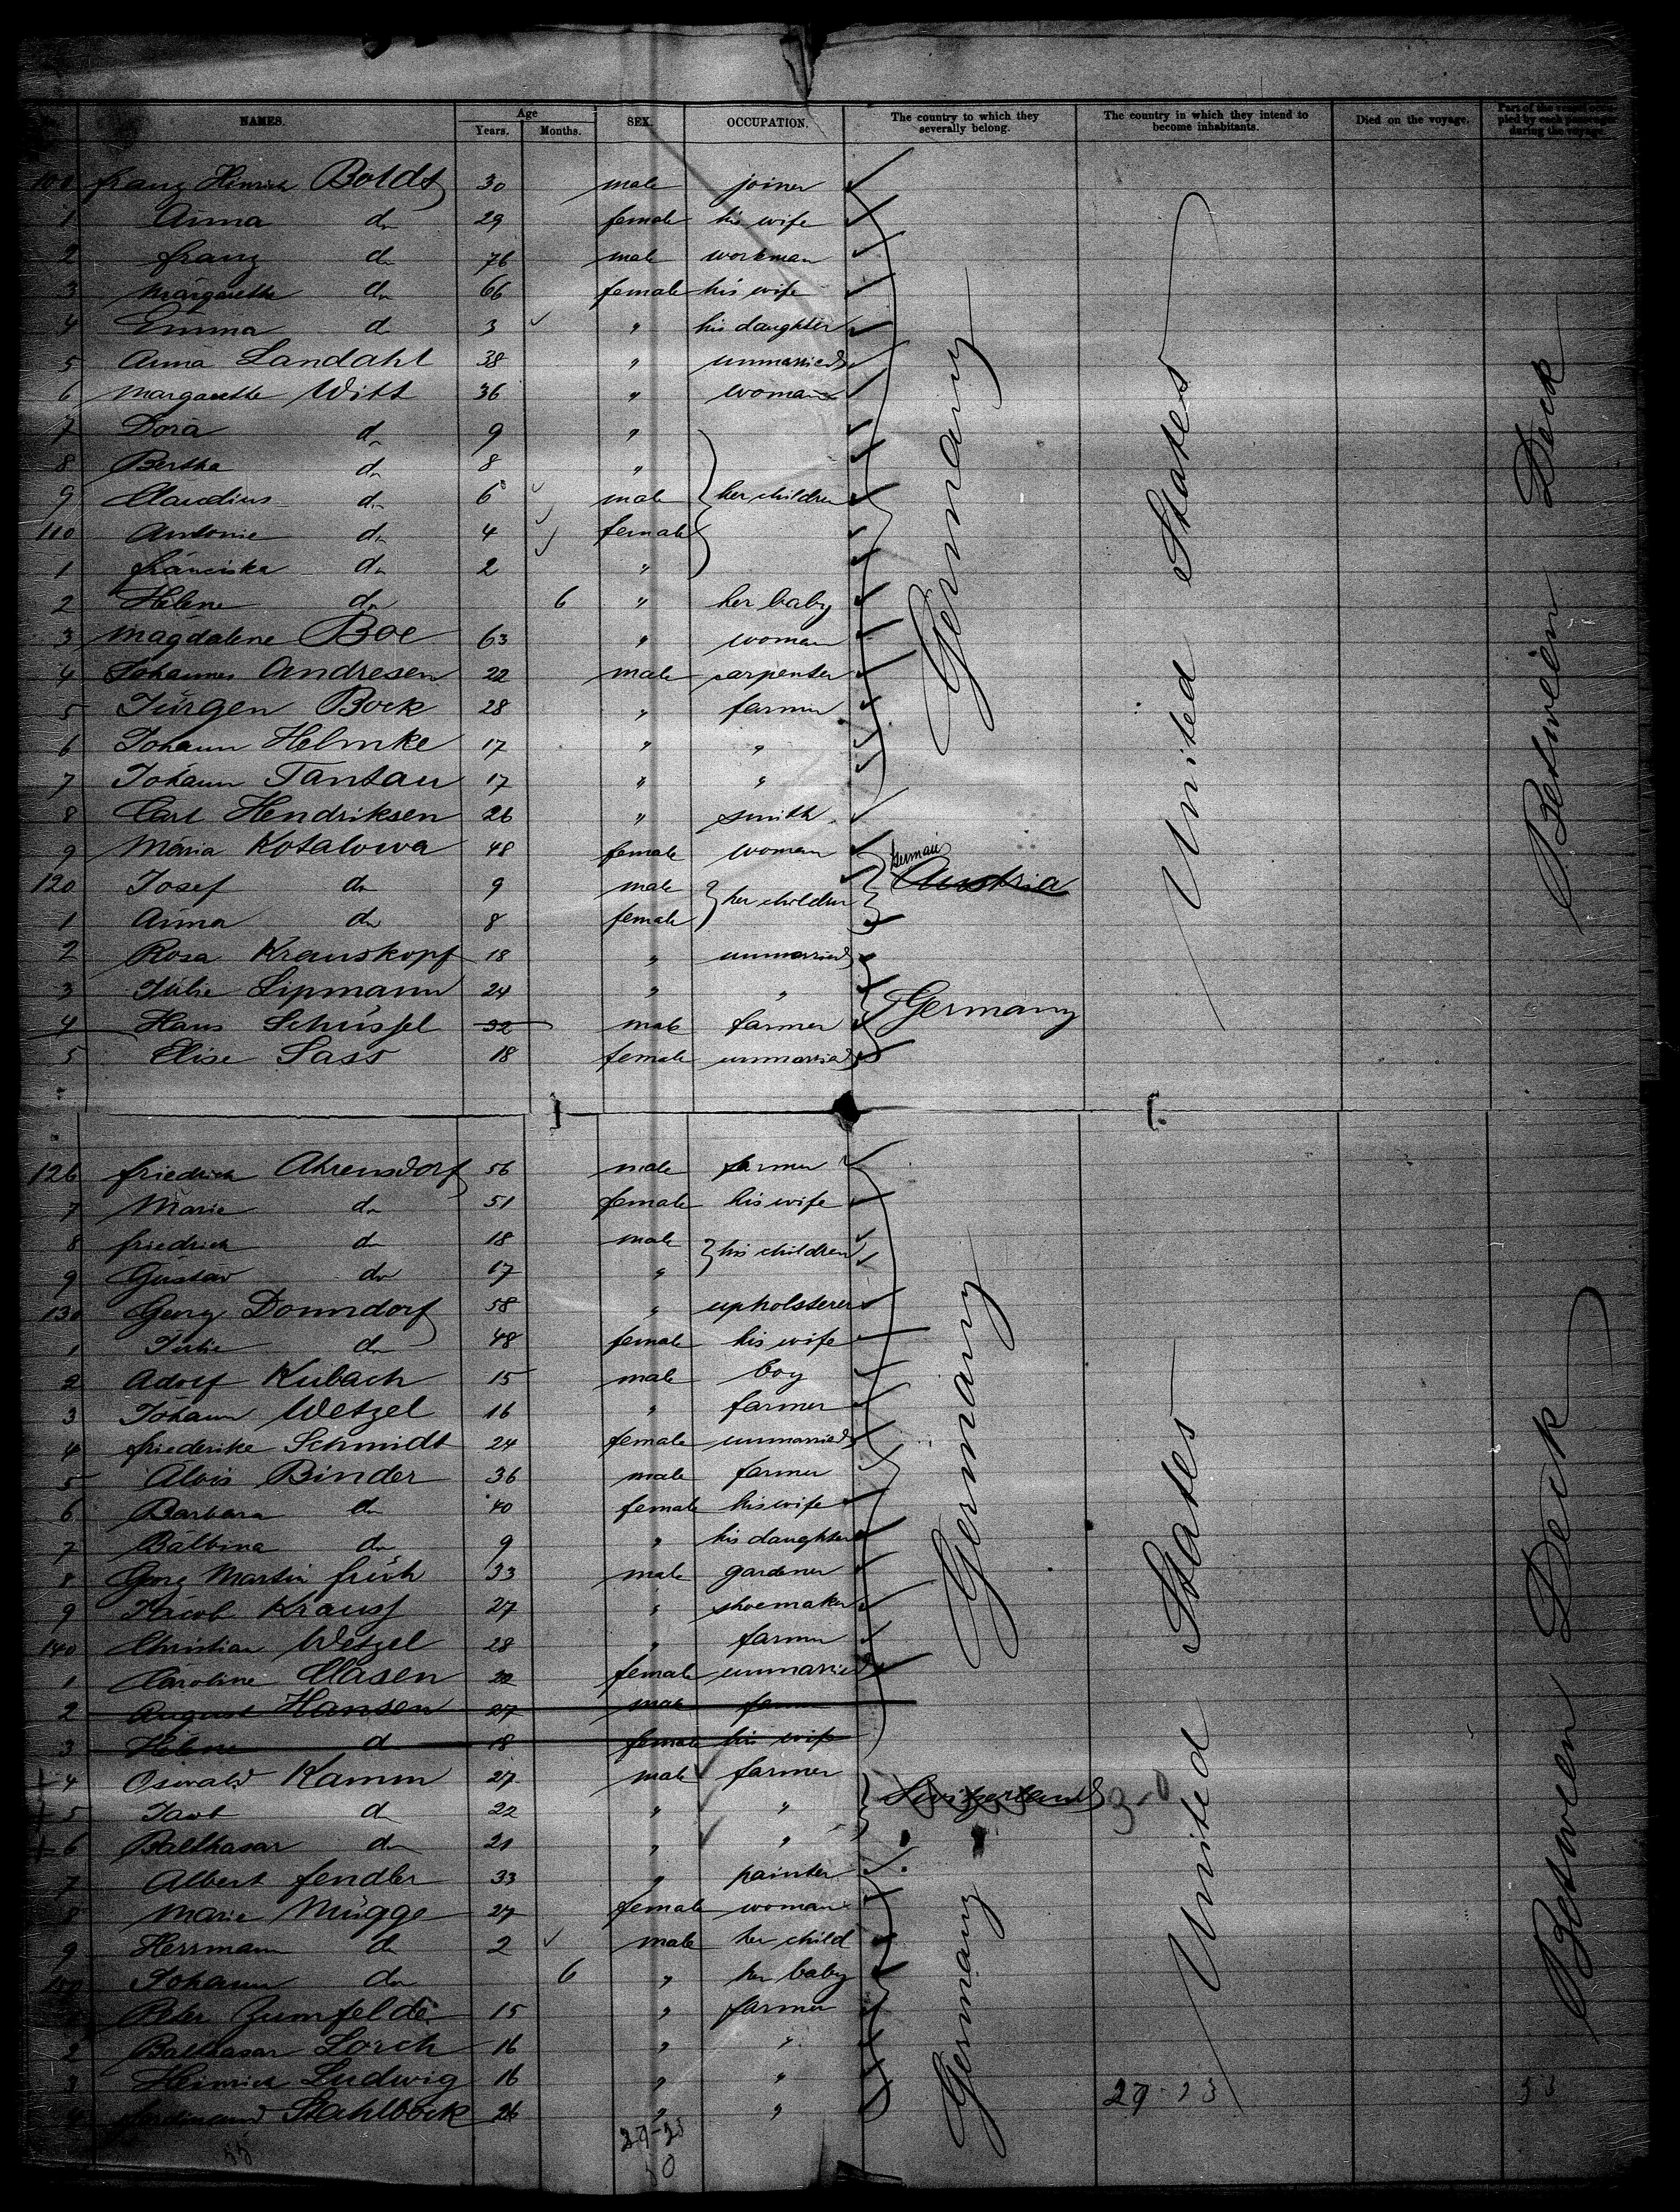 NAMES. Age Years. Months. SEX. OCCUPATION. The country to which they severally belong. The country in which they intend to become inhabitants. Died on the voyage. Part of the vessel occupied by each passenger during the voyage.
franz Hinrich Boldt 30 male joiner
1 Anna do 29 female his wife
2 franz do 76 male workman
3 Margarethe do 66 female his wife
4 Emma do 3 " his daughter
5 Anna Landahl 38 " unmarried
6 Margarethe Witt 36 " woman
7 Dora do 9 "
8 Bertha do 8 "
9 Claudius do 6 male her children
110 Antonie do 4 female
1 franciska do 2 "
2 Helene do 6 " her baby
3 Magdalene Boe 63 " woman
4 Johannes Andresen 22 male carpenter
5 Jürgen Bock 28 " farmer
6 Johann Helmke 17 " "
7 Johann Tantau 17 " "
Germany
United States
Between Deck
8 Carl Hendriksen 26 " smith
9 Maria Kotalowa 48 female woman
German
120 Josef do 9 male her children Austria
1 Anna do 8 female
2 Rosa Krauskopf 18 " unmarried
3 Julie Lipmann 24 " "
Germany
4 Hans Schüssel 32 male farmer
5 Elise Sass 18 female unmarried
126 friedrich Ahrensdorf 56 male farmer
7 Marie do 51 female his wife
8 friedrich do 18 male his children
9 Gustav do 17 "
130 Georg Donndorf 58 " upholsterer
1 Julie do 48 female his wife
2 Adolf Kubach 15 male boy
3 Johann Wetzel 16 " farmer
4 friederike Schmidt 24 female unmarried
5 Alois Binder 36 male farmer
6 Barbara do 40 female his wife
7 Balbina do 9 " his daughter
8 Georg Martin früh 33 male gardener
9 Jacob Krauss 27 " shoemaker
140 Christian Wetzel 28 " farmer
1 Caroline Clasen 22 female unmarried
2 August Hansen 27 male farmer
3 Helene do 18 female his wife
Germany
United States
Between Deck
4 Oswald Kamm 27 male farmer
Switzerland
5 do 22 " "
6 Balthasar do 21 " "
7 Albert fendler 33 " painter
8 Marie Mügge 27 female woman
9 Herrmann do 2 male her child
150 Johann do 6 " her baby
Peter Zumfelde 15 " farmer
2 Balthasar Lorch 16 " "
3 Heinrich Ludwig 16 " "
4 ferdinand Stahlbock 26 " "
Germany